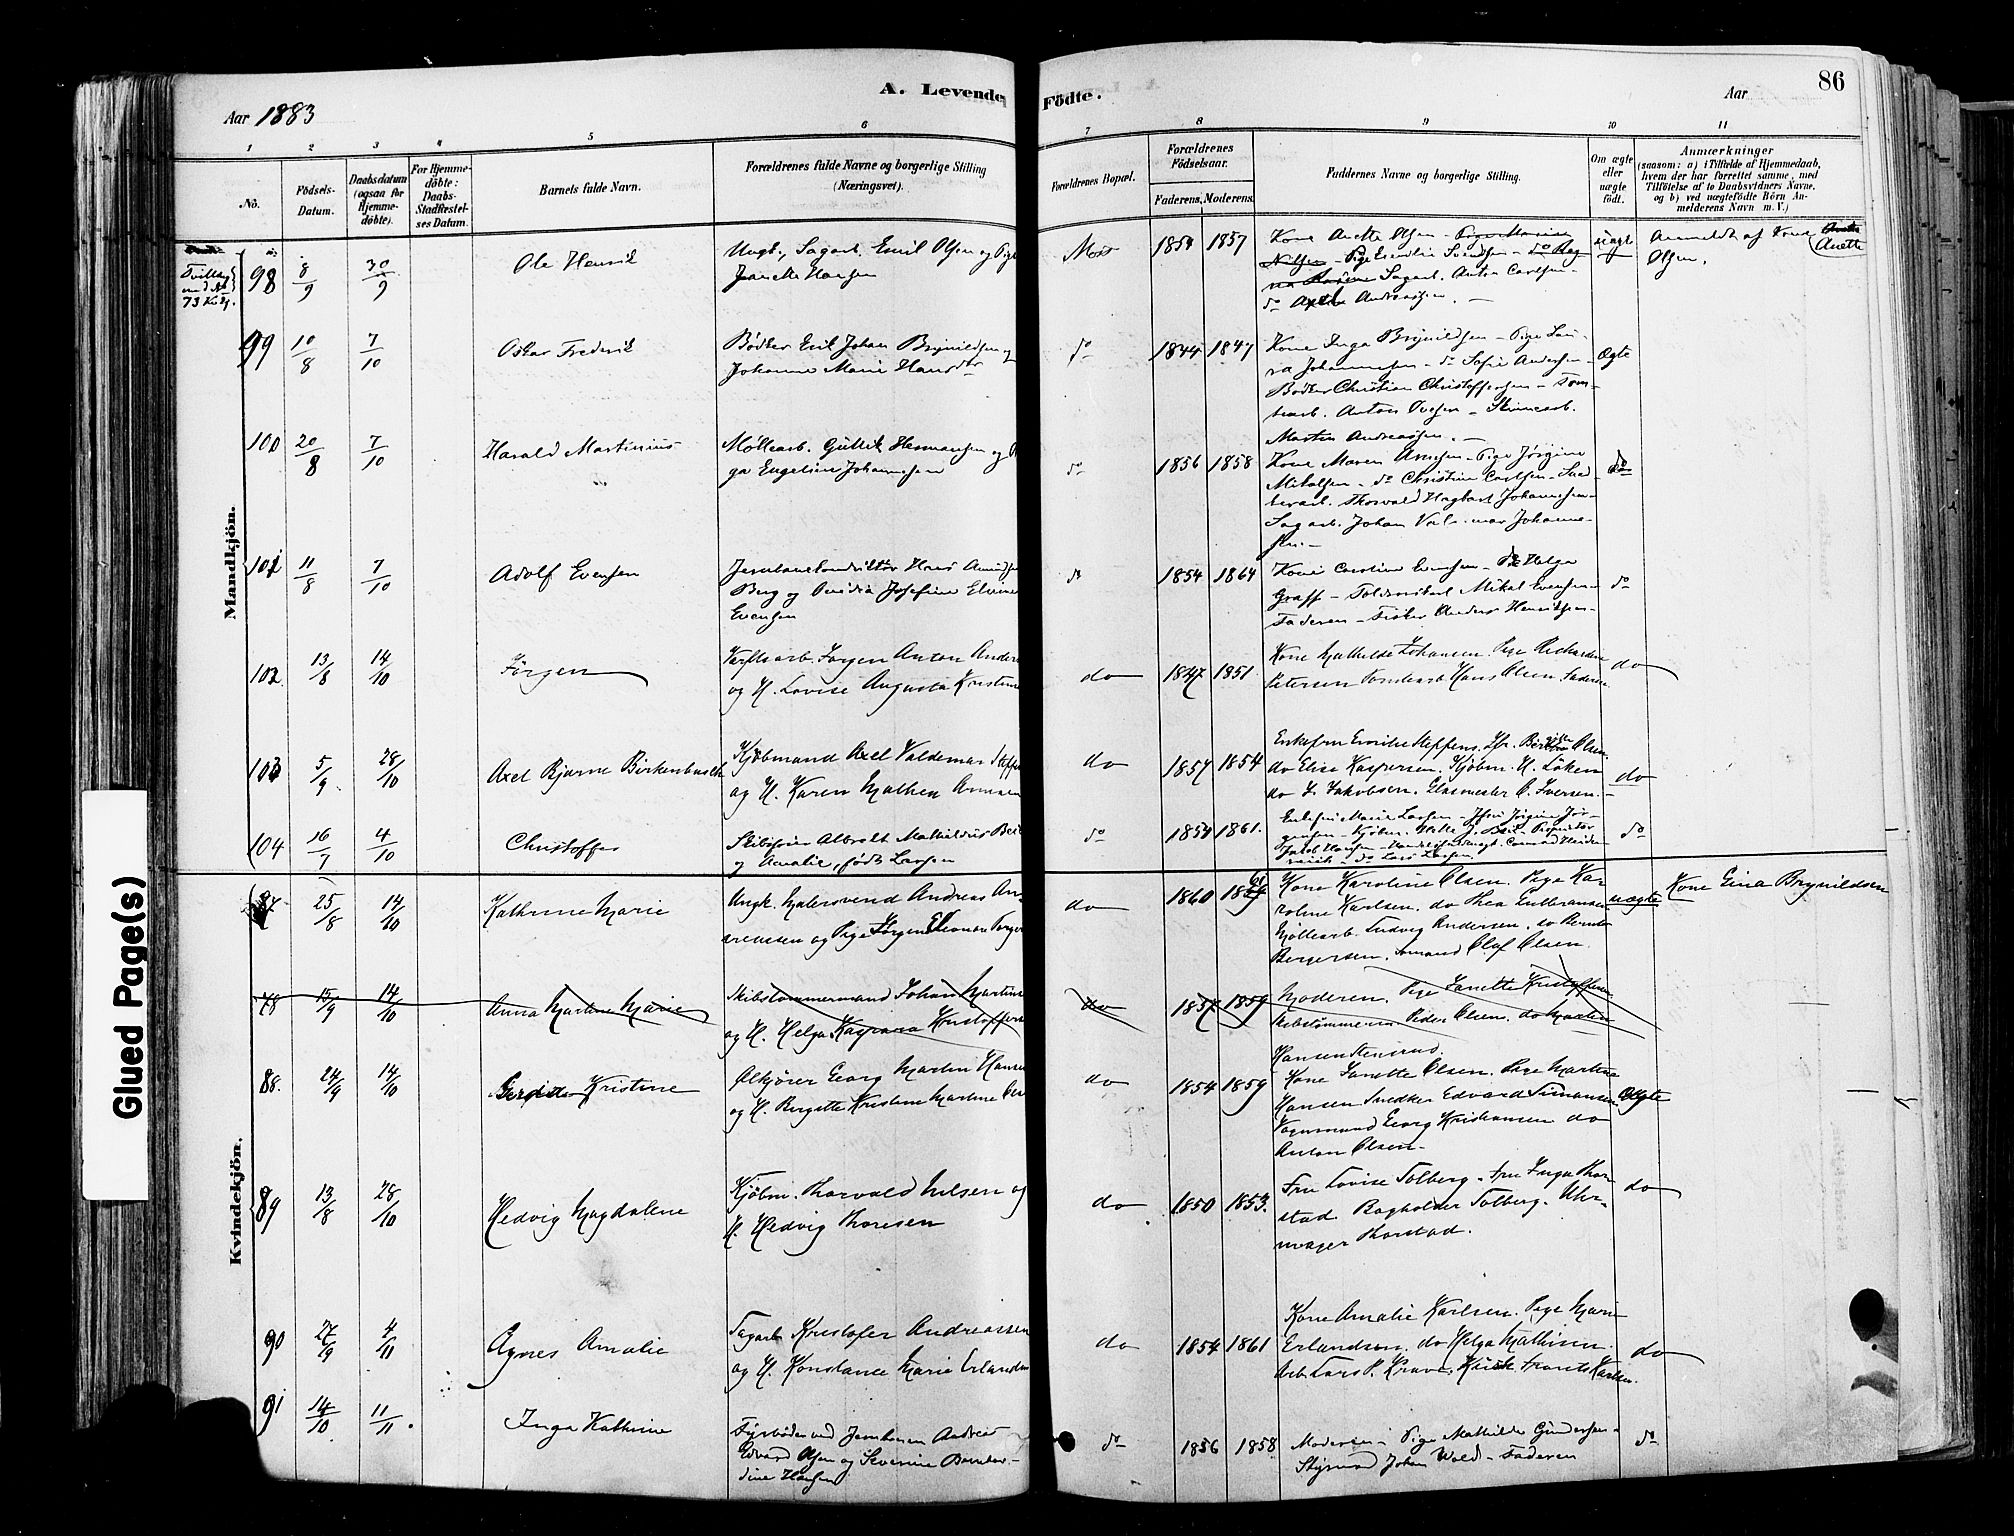 A. Levende Födte.
86
Aar 1883
Aar
1 2 3 4 5 6 7 8 9 10 11
No.
Födsels-Datum.
Daabsdatum (ogsaa for Hjemme-döbte).
For Hjemme-döbte: Daabs-Stadfæstel-ses Datum.
Barnets fulde Navn.
Forældrenes fulde Navne og borgerlige Stilling (Næringsvei).
Forældrenes Bopæl.
Forældrenes Födselsaar.
Faderens. Moderens.
Faddernes Navne og borgerlige Stilling.
Om ægte eller uægte födt.
Anmærkninger
(saasom: a) i Tilfælde af Hjemmedaab,
hvem der har forrettet samme, med
Tilföielse af to Daabsvidners Navne,
og b) ved uægtefödte Börn An-
melderens Navn m. V.)
Mandkjön.
Tvilling
med No
73 Kvkj.
98 8/9 30/9 Ole Henrik
Ungk. Sagarb. Emil Olsen og Pige
Janette Hansen
Moss 1854 1857
Kone Anette Olsen - Pige Marine
Nilsen - Pige Svendsen - do Rag
Sagarb. Anton Carlsen -
do Axel Andreassen. -
uægte
Anmeldt af Kone Anette
Olsen.
99 10/8 7/10 Oskar Frederik
Bødker Emil Johan Brynildsen og
Johanne Marie Hansdtr
do 1844 1847
Kone Inga Brynildsen - Pige Lau-
ra Johannesen - do Sofie Andersen -
Bødker Christian Christoffersen - Tom-
tearb. Anton Ovesen -
Martin Andreassen. -
Ægte
100 20/8 7/10 Harald Martinius
Møllearb. Gullik Hermansen og
Engeline Johannesen
do 1856 1858
Kone Maren Arnesen - Pige Jørgine
Mikalsen - do Christine Carlsen - Sned
kerarb. Thorvald Hagbart Johannesen -
Sagarb. Johan Valdemar Johanne-
sen. -
do
101 11/8 7/10 Adolf Evensen
Jernbanekonduktør Hans Amundsen
Berg og Josefine Elvine
Evensen
do 1854 1864
Kone Caroline Evensen - Helga
Graff - Mikal Evensen -
Faderen - Fisker Anders Henriksen -
do
102 13/8 14/10 Jørgen
Verftsarb. Jørgen Anton Anders
og H. Lovise Augusta Kristine
do 1847 1851
Kone Mathilde Johansen. Pige Rikharda
Petersen Tomtearb. Hans Olsen. Faderen.
do
103 5/9 28/10 Axel Bjarne Birkenbusch
Kjøbmand Axel Valdemar Steffens
og H. Karen Mathea
do 1857 1854
Enkefru Emilie Steffens. Jfr. Birgitte Olsen.
do Elise Kaspersen. Kjøbm. H. Løken
do J. Jakobsen. Glasmester C. Iversen. -
do
104 16/7 4/10 Christoffer
Skibsfører Albrekt Mathildus Beck
og Amalie, født Larsen
do 1854 1861.
Enkefru Marie Larsen - Jfru Jørgine Jør-
gensen - Kjøbm.
Jacob Hansen -
do Lars Larsen
do
Kvindekjön.
87 25/8 14/10 Kathrine Marie
Ungk. Malersvend Andreas An-
dreassen og Pige Jørgen Eleonore Torger
do 1860
Kone Karoline Olsen. Pige Ka-
roline Karlsen. do Thea Gulbransen
Møllearb. Ludvig Andersen. do Bernt
Bergersen. Sømand Olaf Olsen.
uægte
Kone Eina Brynildsen
78 15/9 14/10 Anna Martine Marie
Skibstømmermand Johan Martins
og H. Helga Kaspara Kristoffers
do 1857 1859
Moderen. Pige Janette Kristoffersen.
Skibstømmerm. Peder Olsen. do Martin
Hansen Stensrud.
88. 24/9 14/10 Kristine
Ølkjører Georg Martin Hansen
og H. Birgitte Kristine Martine
do 1854 1859
Kone Janette Olsen. Pige Martine
Hansen Snedker Edvard Simonsen
Vognmand Georg Kristiansen do
Anton Olsen -
Ægte
89 13/8 28/10 Hedvig Magdalene
Kjøbm. Thorvald Nilsen og
H. Hedvig Thoresen
do 1850 1853.
Fru Lovise Solberg. Fru Inga Thor-
stad. Bogholder Solberg. Uhr-
mager Thorstad.
do
90 27/9 4/11 Agnes Amalie
Sagarb Kristofer Andreassen
og H. Konstance Marie Erlandsen
do 1854 1861
Kone Amalie Karlsen. Pige Marie
Erlandsen. do Helga Mathisen.
Arb. Lars P. Frants Karlsen.
do
91 14/10 11/11 Inga Kathrine
Fyrbøder ved Jernbanen Andreas
Edvard Olsen og Severine Bernhar-
dine Hansen
do 1856 1858
Moderen - Pige Mathilde Gundersen -
Styrmand Johan Wold - Faderen
do
Glued Page(s)